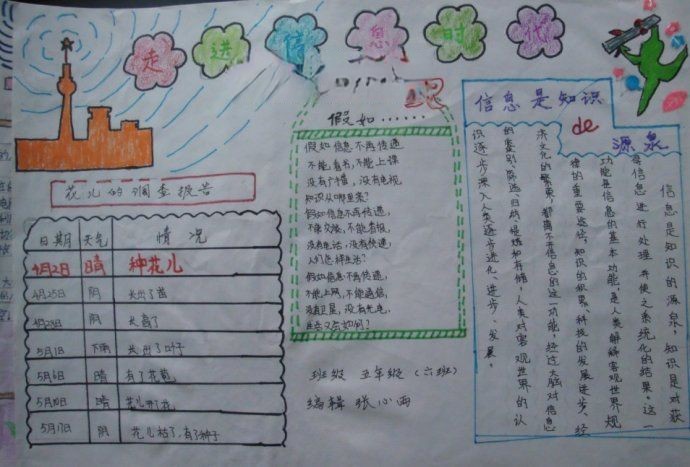 走进信息时代
花儿的调查报告
日期 天气 情况
4月2日 晴 种花儿
4月25日 阴 长出了苗
4月28日 阴 长高了
5月1日 下雨 长出了叶子
5月6日 晴 有了花苞
5月10日 晴 花儿开了花
5月17日 阴 花儿枯了,有了种子
假如……
假如信息不再传递,
不能看书,不能上课
没有广播,没有电视,
知识从哪里来?
假如信息不再传递,
不能交谈,不能看报,
没有电话,没有快递,
人们怎样生活?
假如信息不再传递,
不能上网,不能通信,
没有卫星,没有光电,
班级 五年级(六班)
编辑 张心雨
信息是知识
de
源泉
信息是知识的源泉,知识是对获
得信息进行处理并使之系统化的结果。这一
功能是信息的基本功能,是人类解释客观世界规
律的重要途径,知识的积累、科技的发展进步、经
济文化的繁荣,都离不开信息的这一功能,经过大脑对信息
的鉴别、筛选、归纳、提炼和存储,人类对客观世界的认
识逐步深入,人类逐步进化、进步、发展。